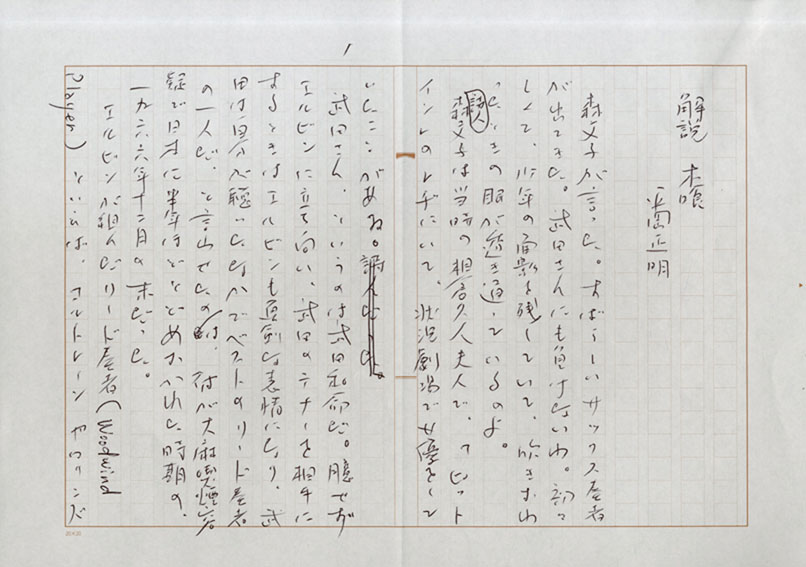 1
解説　木喰
平岡正明
森文子が言った。すばらしいサックス奏者
が出てきた。武田さんにも負けないわ。初々
しくて、少年の面影を残していて、吹きおわ
ったときの眼が透き通っているのよ。
詩人
森文子は当時の相倉久人夫人で、「ピット
インのレヂにいて、状況劇場で女優をして
いたことがある。
武田さん、というのは武田和命だ。臆せず
エルビンに立ち向い、武田のテナーを相手に
するときはエルビンも真剣な表情になり、武
田は自分が聴いたなかでベストのリード奏者
の一人だ、と言わせたのは、彼が大麻喫煙容
疑で日本に半年ほどとどめおかれた時期の、
一九六六年十二月の末だった。
エルビンが組んだリード奏者(Woodwind
Player)といえば、コルトレーン、ロリンズ